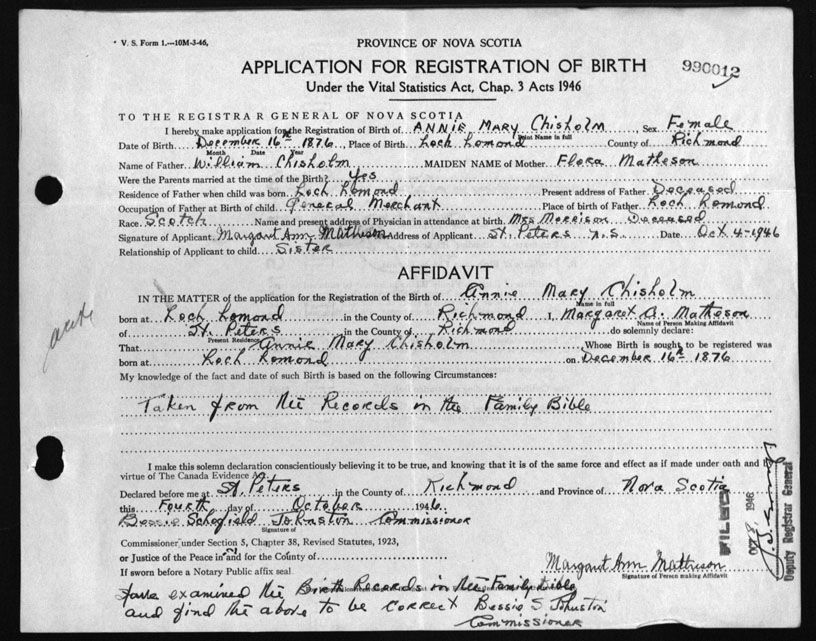 V. S. Form 1.—10M-3-46.
PROVINCE OF NOVA SCOTIA
APPLICATION FOR REGISTRATION OF BIRTH
990012
Under the Vital Statistics Act, Chap. 3 Acts 1946
TO THE REGISTRAR GENERAL OF NOVA SCOTIA
I hereby make application for the Registration of Birth of ANNIE MARY Chisholm Sex Female
Print Name in full
Date of Birth December 16th 1876, Place of Birth Loch Lomond County of Richmond
Month Date Year
Name of Father William Chisholm MAIDEN NAME of Mother Flora Matheson
Were the Parents married at the time of the Birth? Yes
Residence of Father when child was born Loch Lomond Present address of Father Deceased
Occupation of Father at Birth of child General Merchant Place of birth of Father Loch Lomond
Race Scotch Name and present address of Physician in attendance at birth Mrs Morrison Deceased
Signature of Applicant Margaret Ann Matheson Address of Applicant St. Peters N.S. Date Oct 4-1946
Relationship of Applicant to child Sister
AFFIDAVIT
IN THE MATTER of the application for the Registration of Birth of Annie Mary Chisholm
Name in full
born at Loch Lomond in the County of Richmond I, Margaret A. Matheson
Name of Person Making Affidavit
of St. Peters in the County of Richmond do solemnly declare:
Present Residence
That Annie Mary Chisholm Whose Birth is sought to be registered was
born at Loch Lomond on December 16th 1876
My knowledge of the fact and date of such Birth is based on the following Circumstances:
Taken from the Records in the Family Bible
I make this solemn declaration conscientiously believing it to be true, and knowing that it is of the same force and effect as if made under oath and
virtue of The Canada Evidence
Declared before me at St. Peters in the County of Richmond and Province of Nova Scotia
this Fourth day of October 1946.
Bessie Schofield Johnston Commissioner
Signature of
Commissioner under Section 5, Chapter 38, Revised Statutes, 1923,
or Justice of the Peace in and for the County of
If sworn before a Notary Public affix seal
Margaret Ann Matheson
Signature of Person making Affidavit
FILED
OCT 8 1946
Deputy Registrar General
have examined the Birth Records in the Family Bible
and find the above to be correct Bessie S. Johnston
Commissioner